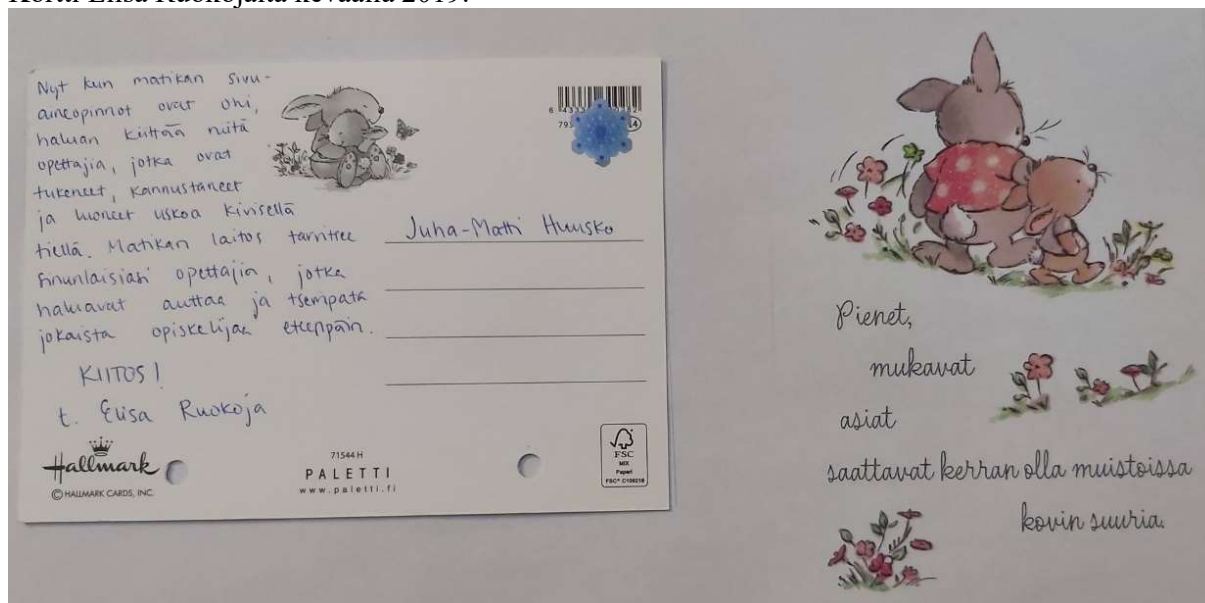 Nyt kun matikan sivu-
aineopinnot ovat ohi,
haluan kiittää niitä
opettajia, jotka ovat
tukeneet, kannustaneet
ja luoneet uskoa kivisellä
tiellä. Matikan laitos tarvitsee
sinunlaisiasi opettajia, jotka
haluavat auttaa ja tsempata
jokaista opiskelijaa eteenpäin.
KIITOS!
t. Elisa Ruokoja
Juha-Matti Huusko
Hallmark
© HALLMARK CARDS, INC.
71544 H
PALETTI
www.paletti.fi
FSC
MIX
Paperi
Pienet,
mukavat
asiat
saattavat kerran olla muistoissa
kovin suuria.